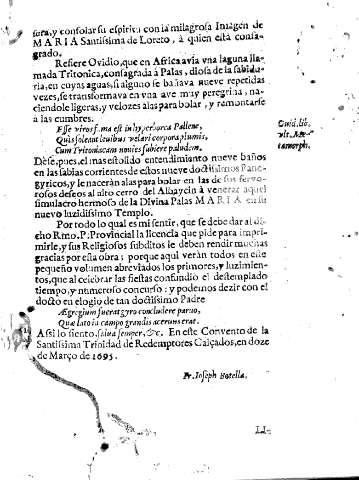 sura, y consolar su espiritu con la milagrosa Imagen de
MARIA Santissima de Loreto, à quien està consa-
grado.
Refiere Ovidio, que en Africa avia vna laguna lla-
mada Tritonica, consagrada à Palas, diosa de la sabidu-
ria, en cuyas aguas, si alguno se bañava nueve repetidas
vezes, se transformava en vna ave muy peregrina, na-
ciendole ligeras, y velozes alas para bolar, y remontarse
à las cumbres.
Esse viros fama est in hyperborea Pallene,
Qui soleant levibus velari corpora plumis,
Cum Tritoniacam novies subiere paludem.
Ouid. lib.
ult. Me-
tamorph.
Dese, pues, el mas estolido entendimiento nueve baños
en las sabias corrientes de estos nueve doctissimos Pane-
gyricos, y le naceràn alas para bolar en las de sus fervo-
rosos deseos al alto cerro del Albaycin à venerar aquel
simulacro hermoso de la Divina Palas MARIA en su
nuevo luzidissimo Templo.
Por todo lo qual es mi sentir, que se debe dar al di-
cho Rmo. P. Provincial la licencia que pide para impri-
mirle, y sus Religiosos subditos le deben rendir muchas
gracias por esta obra; porque aqui veràn todos en este
pequeño volumen abreviados los primores, y luzimien-
tos, que al celebrar las fiestas confundio el destemplado
tiempo, y numeroso concurso: y podemos dezir con el
docto en elogio de tan doctissimo Padre
Ægregium fuerat gyro concludere paruo,
Quæ lato in campo grandis acerus erat.
Assi lo siento, salva semper, &c. En este Convento de la
Santissima Trinidad de Redemptores Calçados, en doze
de Março de 1695.
Fr. Joseph Botella.